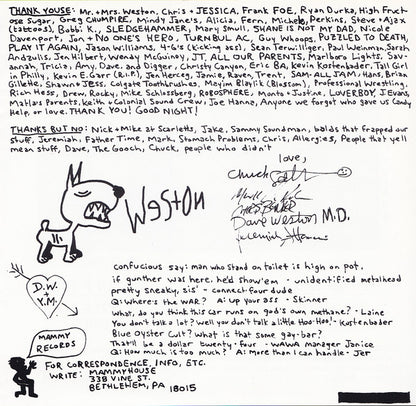 THANK YOUSE: Mr. + Mrs. Weston, Chris + JESSICA, Frank FOE, Ryan Durka, High Fruct-
ose Sugar, Greg CHUMPIRE, Mindy Jane's, Alicia, Fern, Michele, Perkins, Steve + Ajax
(tattoos), Bobbi K., SLEDGEHAMMER, Mary Snull, SHANE IS NOT MY DAD, Nicole
Davenport, Jen + NO ONE'S HERO, TURNBUL AC, Guy Whoops, PUZZLED TO DEATH,
PLAY IT AGAIN, Jason Williams, 4-G's (kicking ass), Sean Terwilliger, Paul Weinman, Sarah
Andzulis, Jen Hilbert, Wrenay McGuinoy, JT, ALL OUR PARENTS, Marlboro Lights, Sav-
annah, Tricia, Amy, Dave, and Digger, Christy Canyon, Eric BA, Kevin Kostenbader, Tall Girl
in Philly, Kevin E. Carr (R.I.P.), Jen Herceg, Jamie, Raven, Trent, SAM-ALL JAM, Hans, Brian
Gillette, Shawn + JESS, Colgate Toothbrushes, Mayim Bialyik (Blossom), Professional Wrestling,
Rich Ross, Drew, Rocky, Mike Schlossberg, ROBOSPHERE, Monts + Justine, LOVERBOY, JEvans,
Matla's Parents, Keith + Colonial Sound Crew, Joe Hanna, Anyone we forgot who gave us Candy
Help, or love. THANK YOU! GOOD NIGHT!
THANKS BUT NO: Nick + Mike at Scarletts, Jake, Sammy Soundman, bolds that frapped our
stuff, Jeremiah, Father Time, Mark, Stomach Problems, Chris, Allergies, People that yell
mean stuff, Dave, The Gooch, Chuck, people who didn't
love,
Chuck
Dave Weston M.D.
Weston
D.W.
+
Y.M.
MAMMY
RECORDS
Confucious say: man who stand on toilet is high on pot.
if gunther was here, he'd show'em - unidentified metalhead
pretty sneaky, sis' - connect-four dude
Q: Where's the WAR? A: Up your ass - Skinner
What, do you think this car runs on god's own methane? - Laine
You don't talk a lot? Well you don't talk a little Hoo-Hoo! - Kostenbader
Blue Oyster Cult? What is that some gay-bar?
That'll be a dollar twenty-four - WAWA manager Janice
Q: How much is too much? A: More than I can handle - Jer
FOR CORRESPONDENCE, INFO, ETC.
WRITE: MAMMYHOUSE
338 VINE ST.
BETHLEHEM, PA 18015